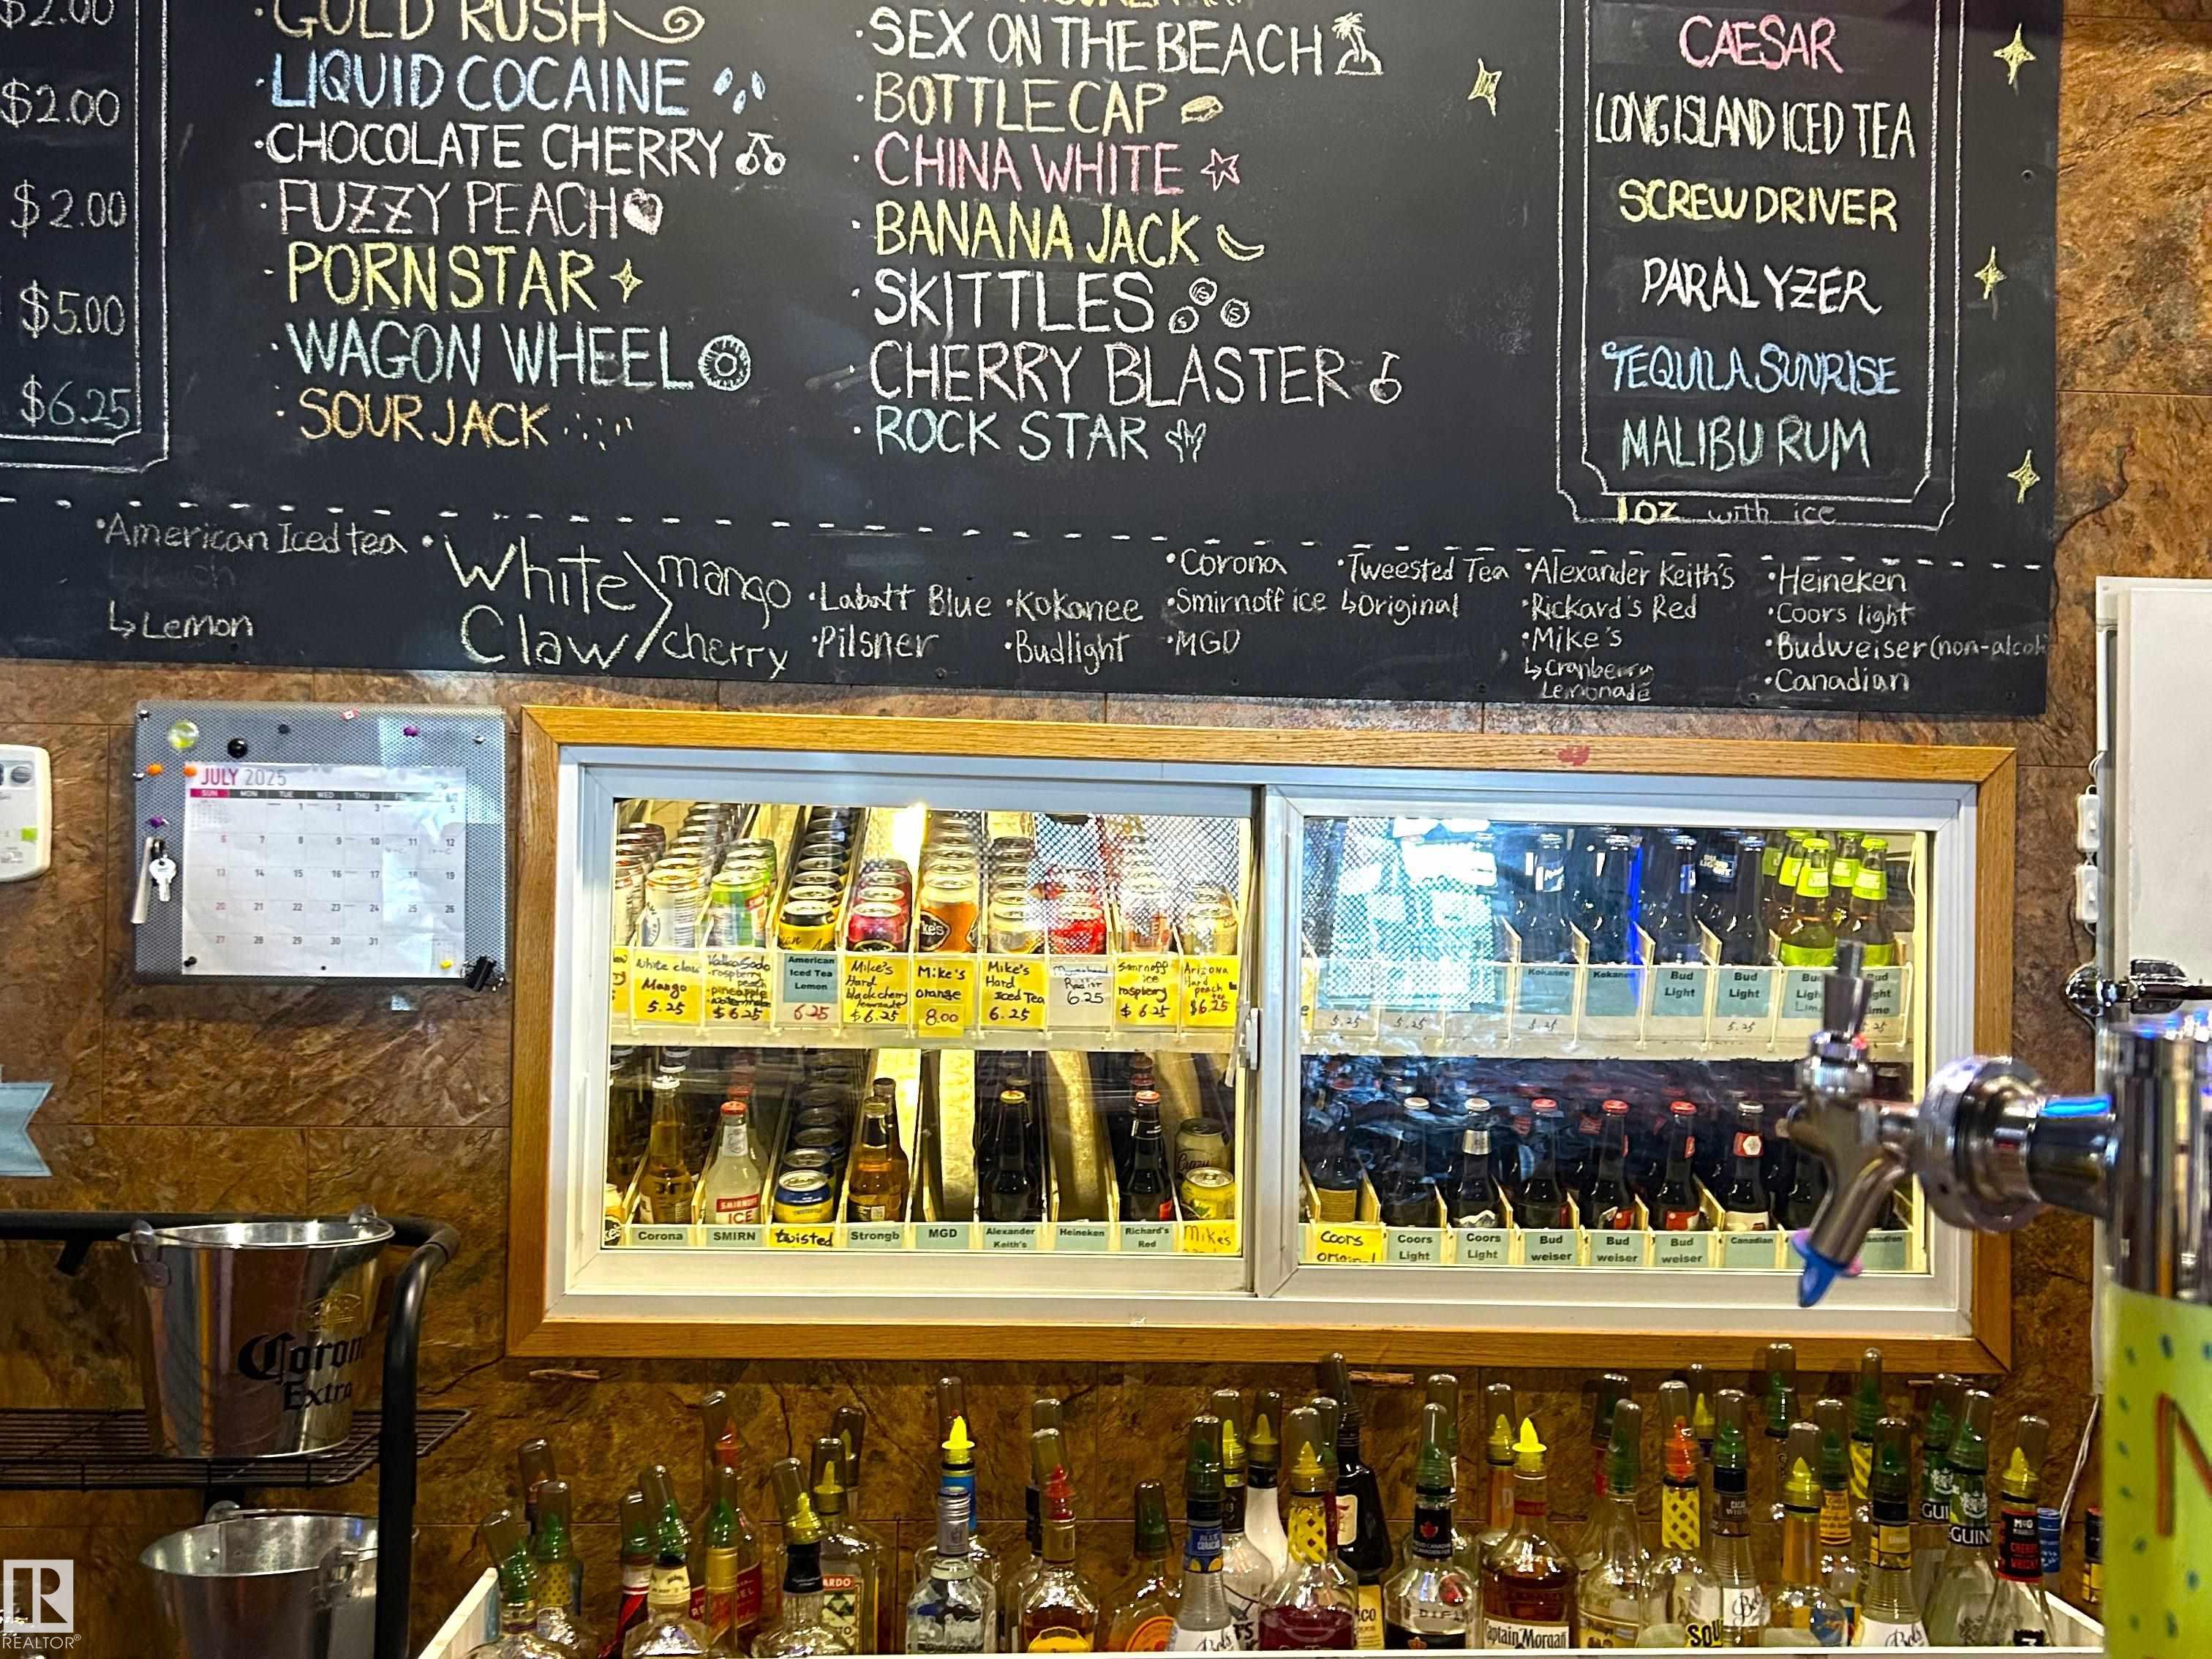 $2.00
$2.00
$2.00
$5.00
$6.25
GOLD RUSH
·LIQUID COCAINE
·CHOCOLATE CHERRY
·FUZZY PEACH
·PORNSTAR
·WAGON WHEEL
·SOUR JACK
·SEX ON THE BEACH
·BOTTLE CAP
·CHINA WHITE
·BANANA JACK
·SKITTLES
·CHERRY BLASTER
·ROCK STAR
CAESAR
LONG ISLAND ICED TEA
SCREWDRIVER
PARALYZER
TEQUILA SUNRISE
MALIBU RUM
1oz with ice
•American Iced tea
↳Lemon
•White Claw
mango
cherry
•Labatt Blue
•Pilsner
•Kokanee
•Budlight
•Corona
•Smirnoff ice
•MGD
•Tweested Tea
↳Original
•Alexander Keith's
•Rickard's Red
•Mike's
↳Cranberry
Lemonade
•Heineken
•Coors light
•Budweiser (non-alcoh
•Canadian
JULY 2025
SUN MON TUE WED THU FRI
1 2 3 5
6 7 8 9 10 11 12
13 14 15 16 17 18 19
20 21 22 23 24 25 26
27 28 29 30 31
White claw
Mango
5.25
Vodka Soda
raspberry
peach
pineapple
$6.25
American
Iced Tea
Lemon
6.25
Mike's
Hard
black cherry
lemonade
$6.25
Mike's
orange
8.00
Mike's
Hard
Iced Tea
6.25
6.25
Smirnoff
ice
raspberry
$6.25
Arizona
Hard
peach
$6.25
5.25
5.25
Kokanee
5.25
Kokanee
Bud
Light
Bud
Light
5.25
Bud
Light
Lime
Bud
ight
ime
5.25
SMIRNOFF
ICE
Corona
SMIRN
twisted
Strongb
MGD
Alexander
Keith's
Heineken
Richard's
Red
Mikes
Coors
original
Coors
Light
Coors
Light
Bud
weiser
Bud
weiser
Bud
weiser
Canadian
anadian
Corona
Extra
Captain Morgan
Bols
SOU
Bols
GUI
GUIN
REALTOR®